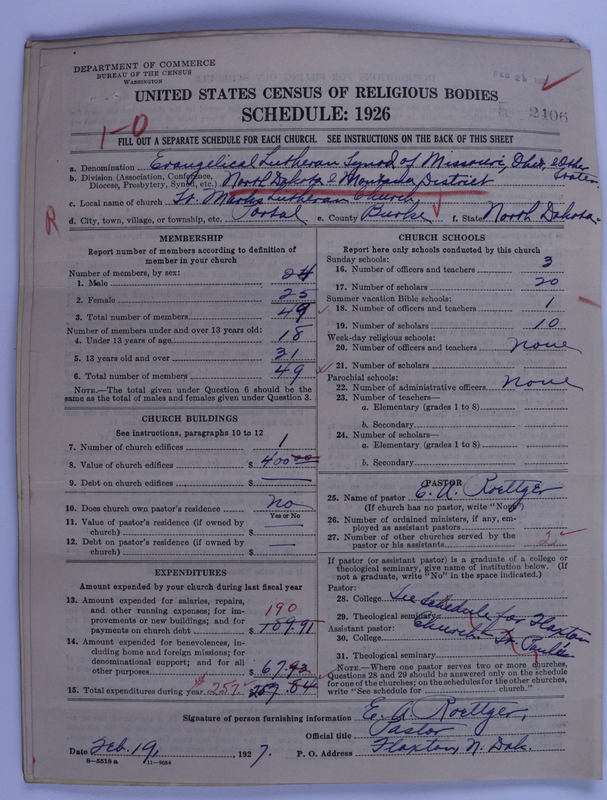 DEPARTMENT OF COMMERCE
BUREAU OF THE CENSUS
WASHINGTON
UNITED STATES CENSUS OF RELIGIOUS BODIES
SCHEDULE: 1926
2406
1-0
FILL OUT A SEPARATE SCHEDULE FOR EACH CHURCH. SEE INSTRUCTIONS ON THE BACK OF THIS SHEET
a. Denomination Evangelical Lutheran Synod of Missouri, Ohio, & Other States
b. Division (Association, Conference, Diocese, Presbytery, Synod, etc.) North Dakota & Montana District
c. Local name of church St. Marks Lutheran Church
d. City, town, village, or township, etc. Portal e. County Burke f. State North Dakota.
R
MEMBERSHIP
Report number of members according to definition of
member in your church
Number of members, by sex:
1. Male 24
2. Female 25
3. Total number of members 49
Number of members under and over 13 years old:
4. Under 13 years of age 18
5. 13 years old and over 31
6. Total number of members 49
NOTE.—The total given under Question 6 should be
same as the total of males and females given under Question 3.
CHURCH BUILDINGS
See instructions, paragraphs 10 to 12
7. Number of church edifices 1
8. Value of church edifices $ 400 00
9. Debt on church edifices $ —
10. Does church own pastor's residence no
Yes or No
11. Value of pastor's residence (if owned by
church) $ —
12. Debt on pastor's residence (if owned by
church) $ —
EXPENDITURES
Amount expended by your church during last fiscal year
13. Amount expended for salaries, repairs,
and other running expenses; for im-
provements or new buildings; and for
payments on church debt 190
$ 189.91
14. Amount expended for benevolences, in-
cluding home and foreign missions; for
denominational support; and for all
other purposes $ 67.93
15. Total expenditures during year $ 257. 257 84
CHURCH SCHOOLS
Report here only schools conducted by this church
Sunday schools:
16. Number of officers and teachers 3
17. Number of scholars 20
Summer vacation Bible schools:
18. Number of officers and teachers 1
19. Number of scholars 10
Week-day religious schools:
20. Number of officers and teachers none
21. Number of scholars
Parochial schools:
22. Number of administrative officers none
23. Number of teachers—
a. Elementary (grades 1 to 8)
b. Secondary
24. Number of scholars—
a. Elementary (grades 1 to 8)
b. Secondary
PASTOR
25. Name of pastor E. A. Roettger
(If church has no pastor, write "None")
26. Number of ordained ministers, if any, em-
ployed as assistant pastors
27. Number of other churches served by the
pastor or his assistants 2
If pastor (or assistant pastor) is a graduate of a college or
theological seminary, give name of institution below. (If
not a graduate, write "No" in the space indicated.)
Pastor:
28. College See Schedule for Flaxton
29. Theological seminary Church St. Paul's
Assistant pastor:
30. College
31. Theological seminary
NOTE.—Where one pastor serves two or more churches,
Questions 28 and 29 should be answered only on the schedule
for one of the churches; on the schedules for the other churches,
write "See schedule for church."
Signature of person furnishing information E. A. Roettger,
Official title Pastor
Date Feb. 19, 1927. P. O. Address Flaxton, N. Dak.
8—5518 a 11—9054